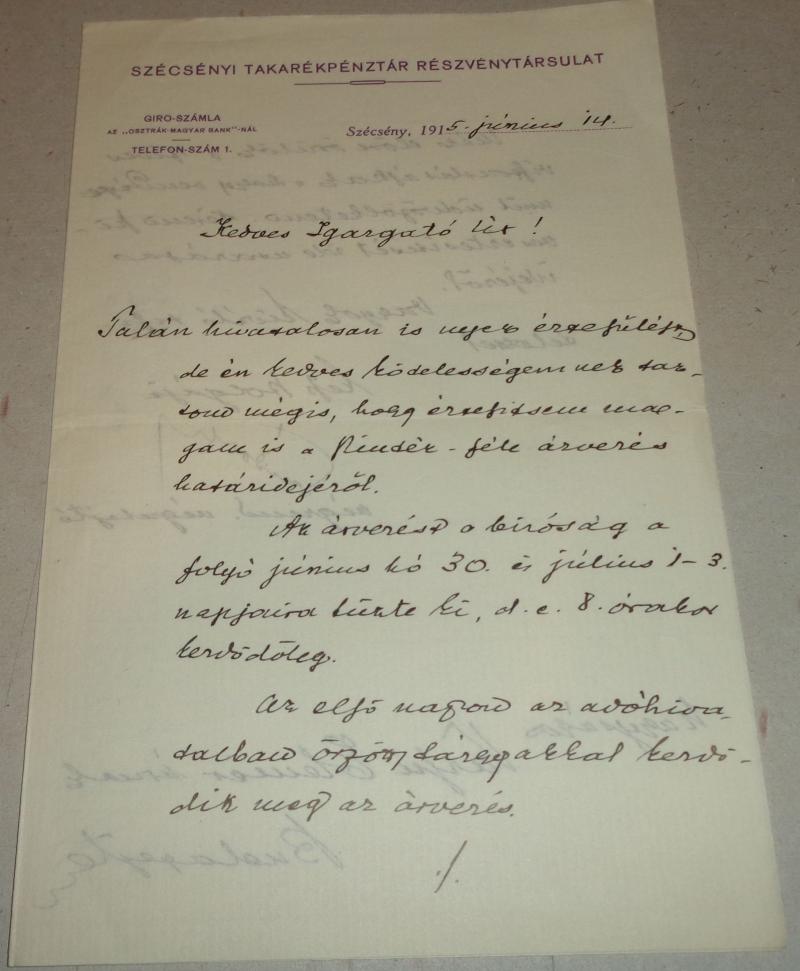 SZÉCSÉNYI TAKARÉKPÉNZTÁR RÉSZVÉNYTÁRSULAT
GIRO-SZÁMLA
AZ „OSZTRÁK-MAGYAR BANK"-NÁL
TELEFON-SZÁM 1.
Szécsény, 1915. június 14.
Kedves Igazgató Úr!
Talán hivatalosan is nyer értesülést,
de én kedves kötelességemnek tar-
tom mégis, hogy értesitsem ma-
gam is a -féle árverés
határidejéről.
Az árverést a biróság a
folyó június hó 30. és július 1-3.
napjaira tűzte ki, d. e. 8. órakor
kezdődőleg.
Az első napon az adóhiva-
talban őrzött tárgyakkal kezdő-
dik meg az árverés.
./.